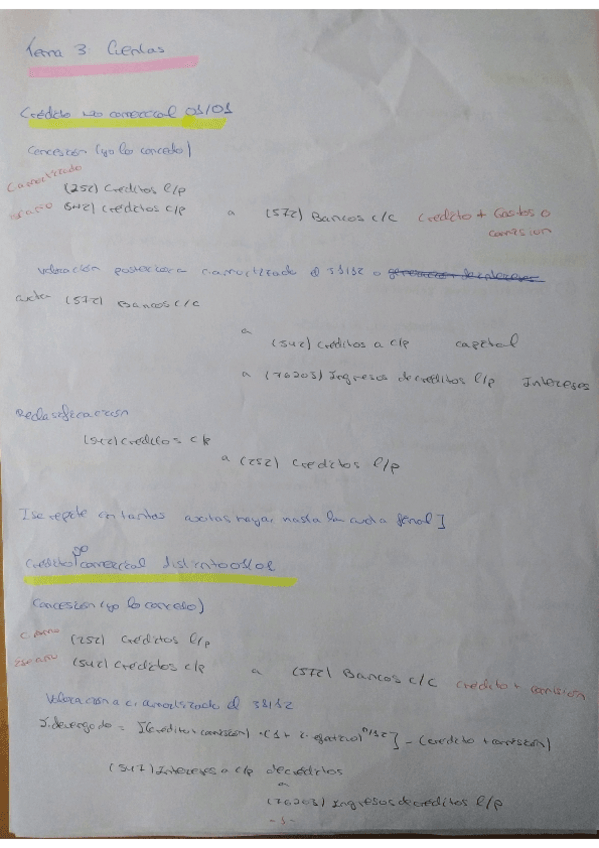 Tema 3 Cuentas
Crédito no comercial 01/01
Concesión (yo lo concedo)
C. amortizado
(252) Creditos l/p
542) creditos c/p a (572) Bancos c/c Credito + Gastos o
comision
Valoración posterior a c. amortizado el 31/12 o generacion de intereses
cuota (572) Bancos c/c
a
(542) creditos a c/p capital
a (76203) Ingresos de creditos l/p Intereses
Reclasificacion
(542) creditos c/p
a (252) creditos l/p
[se repite en tantas cuotas haya, hasta la cuota final]
Crédito no comercial distinto 01/01
Concesión (yo lo concedo)
(252) Creditos l/p
(542) creditos c/p a (572) Bancos c/c credito + comision
Valoracion a c. amortizado el 31/12
I. devengado = [(credito + comision) · (1 + i. efectivo)^n/12] - (credito + comision)
(547) Intereses a c/p de creditos
a
(76203) Ingresos de creditos l/p
- 1 -